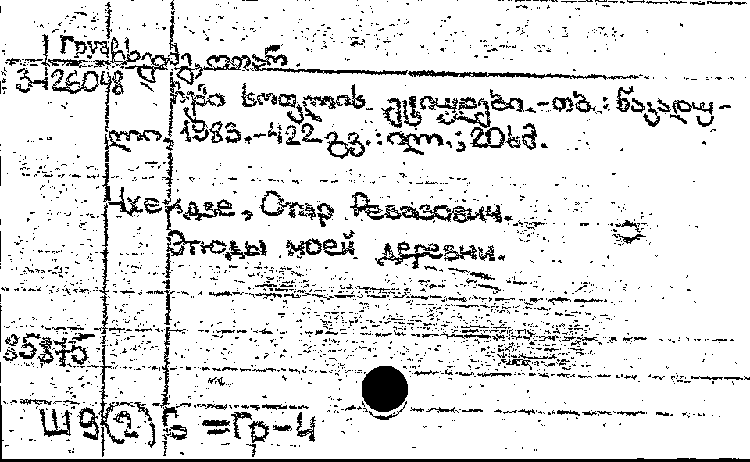 Груз
ჩხეიძე, ოთარ.
3-126048
ჩემი სოფლის ეტიუდები.-თბ.: ნაკადუ-
ლი. 1983.-422 გვ.:ილ.; 20სმ.
Чхеидзе, Отар Ревазович.
Этюды моей деревни.
85875
Ш9(2)Г =Гр-4